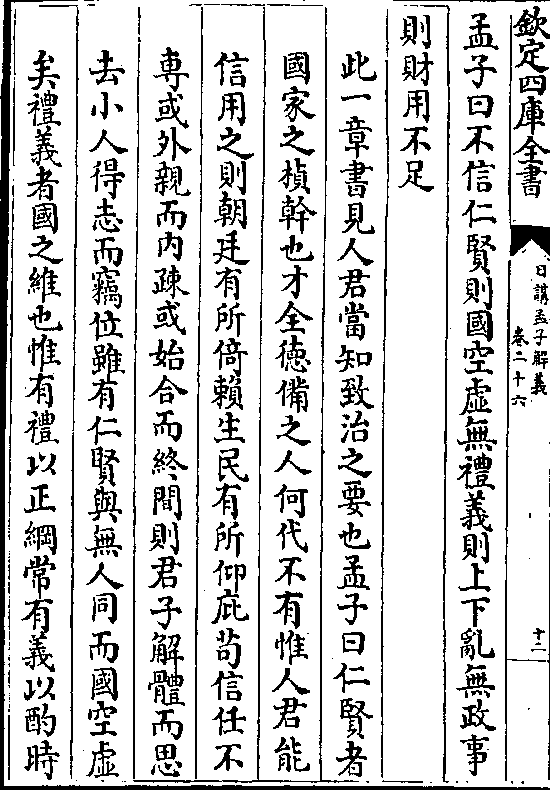 欽定四庫全書
日講孟子解義
卷二十六
十二
孟子曰不信仁賢則國空虛無禮義則上下亂無政事
則財用不足
此一章書見人君當知致治之要也孟子曰仁賢者
國家之楨幹也才全徳備之人何代不有惟人君能
信用之則朝廷有所倚賴生民有所仰庇苟信任不
專或外親而内疎或始合而終間則君子解體而思
去小人得志而竊位雖有仁賢與無人同而國空虛
矣禮義者國之維也惟有禮以正綱常有義以酌時